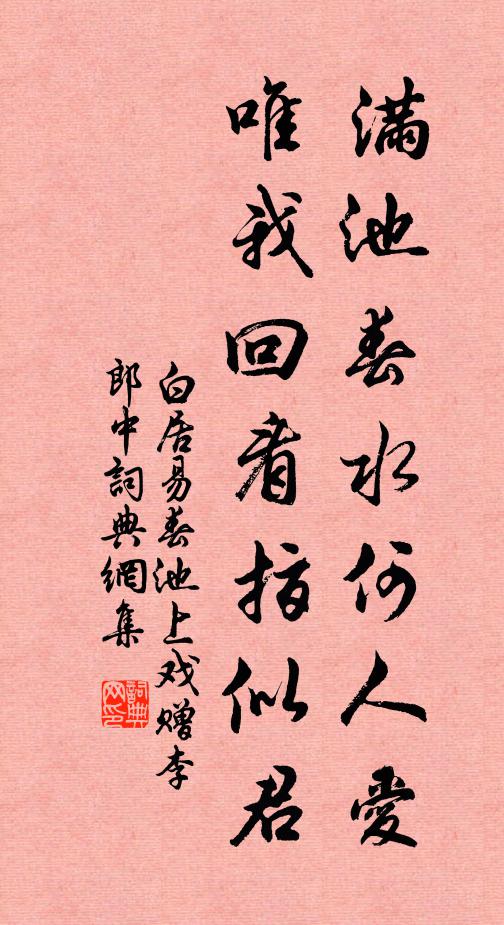 滿池春水何人愛
唯我回看指似君
白居易春池上戏赠李
郎中詞典網集
詞典网印